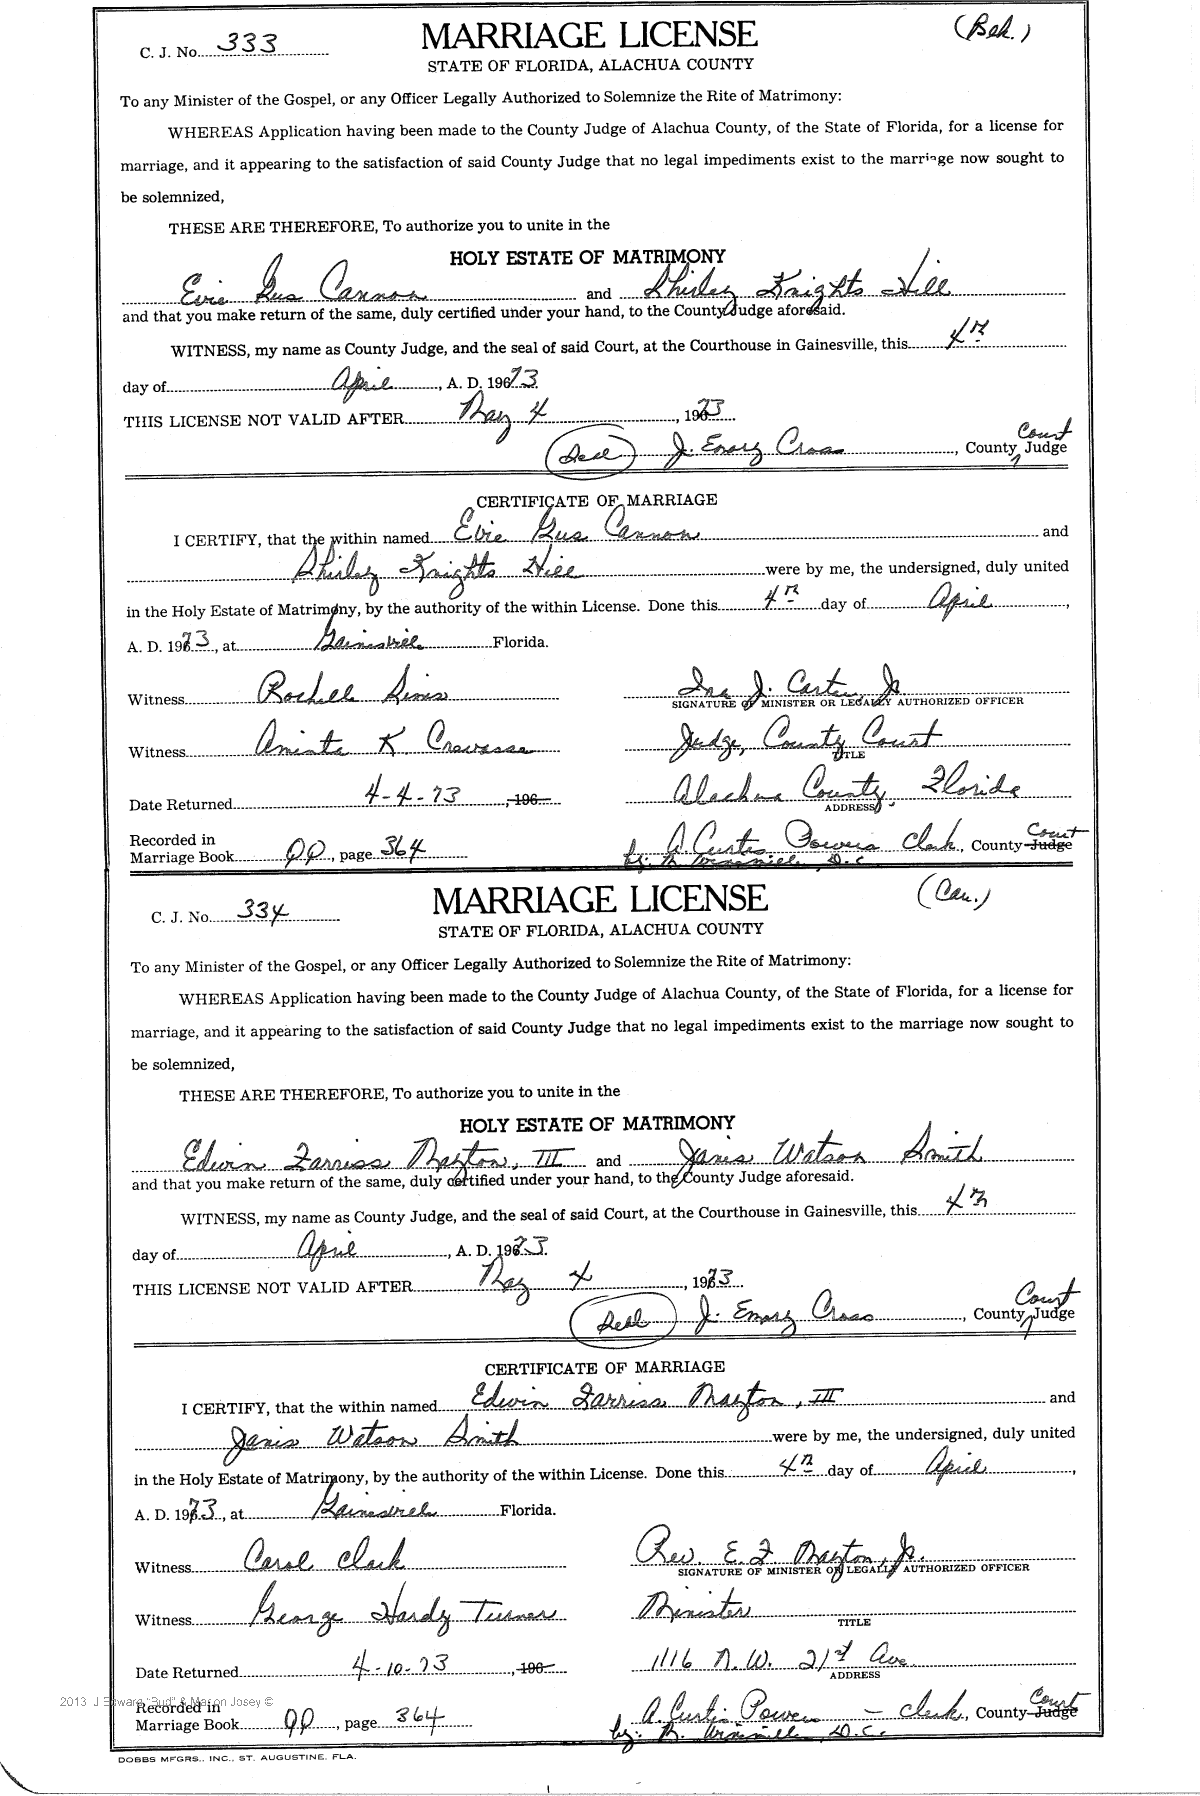 C. J. No. 333 MARRIAGE LICENSE
STATE OF FLORIDA, ALACHUA COUNTY
To any Minister of the Gospel, or any Officer Legally Authorized to Solemnize the Rite of Matrimony:
WHEREAS Application having been made to the County Judge of Alachua County, of the State of Florida, for a license for
marriage, and it appearing to the satisfaction of said County Judge that no legal impediments exist to the marriage now sought to
be solemnized,
THESE ARE THEREFORE, To authorize you to unite in the
HOLY ESTATE OF MATRIMONY
Evie Gus Cannon and Shirley Knights Hill
and that you make return of the same, duly certified under your hand, to the County Judge aforesaid.
WITNESS, my name as County Judge, and the seal of said Court, at the Courthouse in Gainesville, this 4th
day of April, A. D. 1973
THIS LICENSE NOT VALID AFTER May 4, 1973
(Seal) J. Emory Cross, County Court Judge
CERTIFICATE OF MARRIAGE
I CERTIFY, that the within named Evie Gus Cannon and
Shirley Knights Hill were by me, the undersigned, duly united
in the Holy Estate of Matrimony, by the authority of the within License. Done this 4th day of April,
A. D. 1973, at Gainesville Florida.
Witness Rochelle Sims Ira J. Carter, Jr
SIGNATURE OF MINISTER OR LEGALLY AUTHORIZED OFFICER
Witness K Judge, County Court
TITLE
Date Returned 4-4-73, 196 Alachua County, Florida
ADDRESS
Recorded in
Marriage Book QQ, page 364 A. Curtis Powers Clerk, County Court Judge
by: D.C.
C. J. No. 334 MARRIAGE LICENSE (Cau.)
STATE OF FLORIDA, ALACHUA COUNTY
To any Minister of the Gospel, or any Officer Legally Authorized to Solemnize the Rite of Matrimony:
WHEREAS Application having been made to the County Judge of Alachua County, of the State of Florida, for a license for
marriage, and it appearing to the satisfaction of said County Judge that no legal impediments exist to the marriage now sought to
be solemnized,
THESE ARE THEREFORE, To authorize you to unite in the
HOLY ESTATE OF MATRIMONY
Edwin Farriss Mayton, III and Janis Watson Smith
and that you make return of the same, duly certified under your hand, to the County Judge aforesaid.
WITNESS, my name as County Judge, and the seal of said Court, at the Courthouse in Gainesville, this 4th
day of April, A. D. 1973.
THIS LICENSE NOT VALID AFTER May 4, 1973
(Seal) J. Emory Cross, County Court Judge
CERTIFICATE OF MARRIAGE
I CERTIFY, that the within named Edwin Farriss Mayton, III and
Janis Watson Smith were by me, the undersigned, duly united
in the Holy Estate of Matrimony, by the authority of the within License. Done this 4th day of April,
A. D. 1973, at Gainesville Florida.
Witness Carol Clark Rev. E. F. Mayton, Jr.
SIGNATURE OF MINISTER OR LEGALLY AUTHORIZED OFFICER
Witness George Hardy Turner Minister
TITLE
Date Returned 4-10-73, 196 1116 N.W. 21st Ave
ADDRESS
2013 J Edward "Bud" & Marion Josey ©
Recorded in
Marriage Book QQ, page 364 A. Curtis Powers - clerk, County Court Judge
by: D.C.
DOBBS MFGRS., INC., ST. AUGUSTINE, FLA.